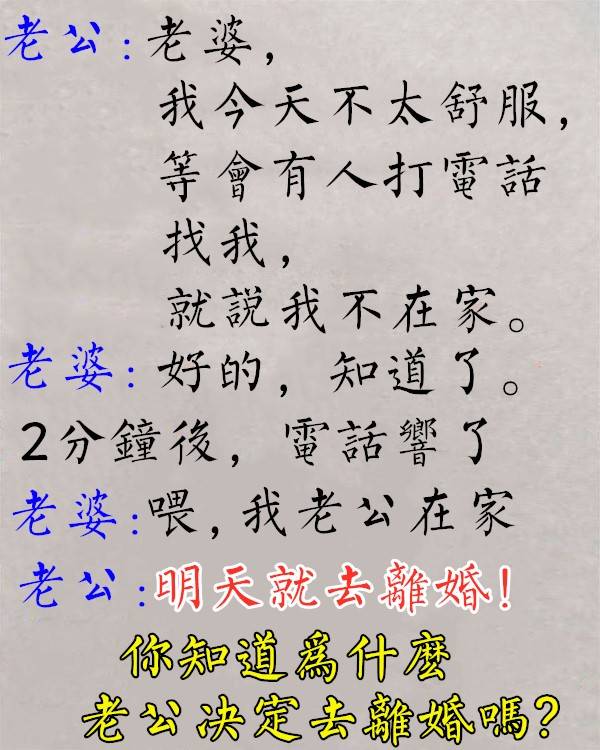 老公:老婆，
我今天不太舒服，
等會有人打電話
找我，
就說我不在家。
老婆:好的，知道了。
2分鐘後，電話響了
老婆:喂，我老公在家
老公:明天就去離婚!
你知道為什麼
老公決定去離婚嗎?